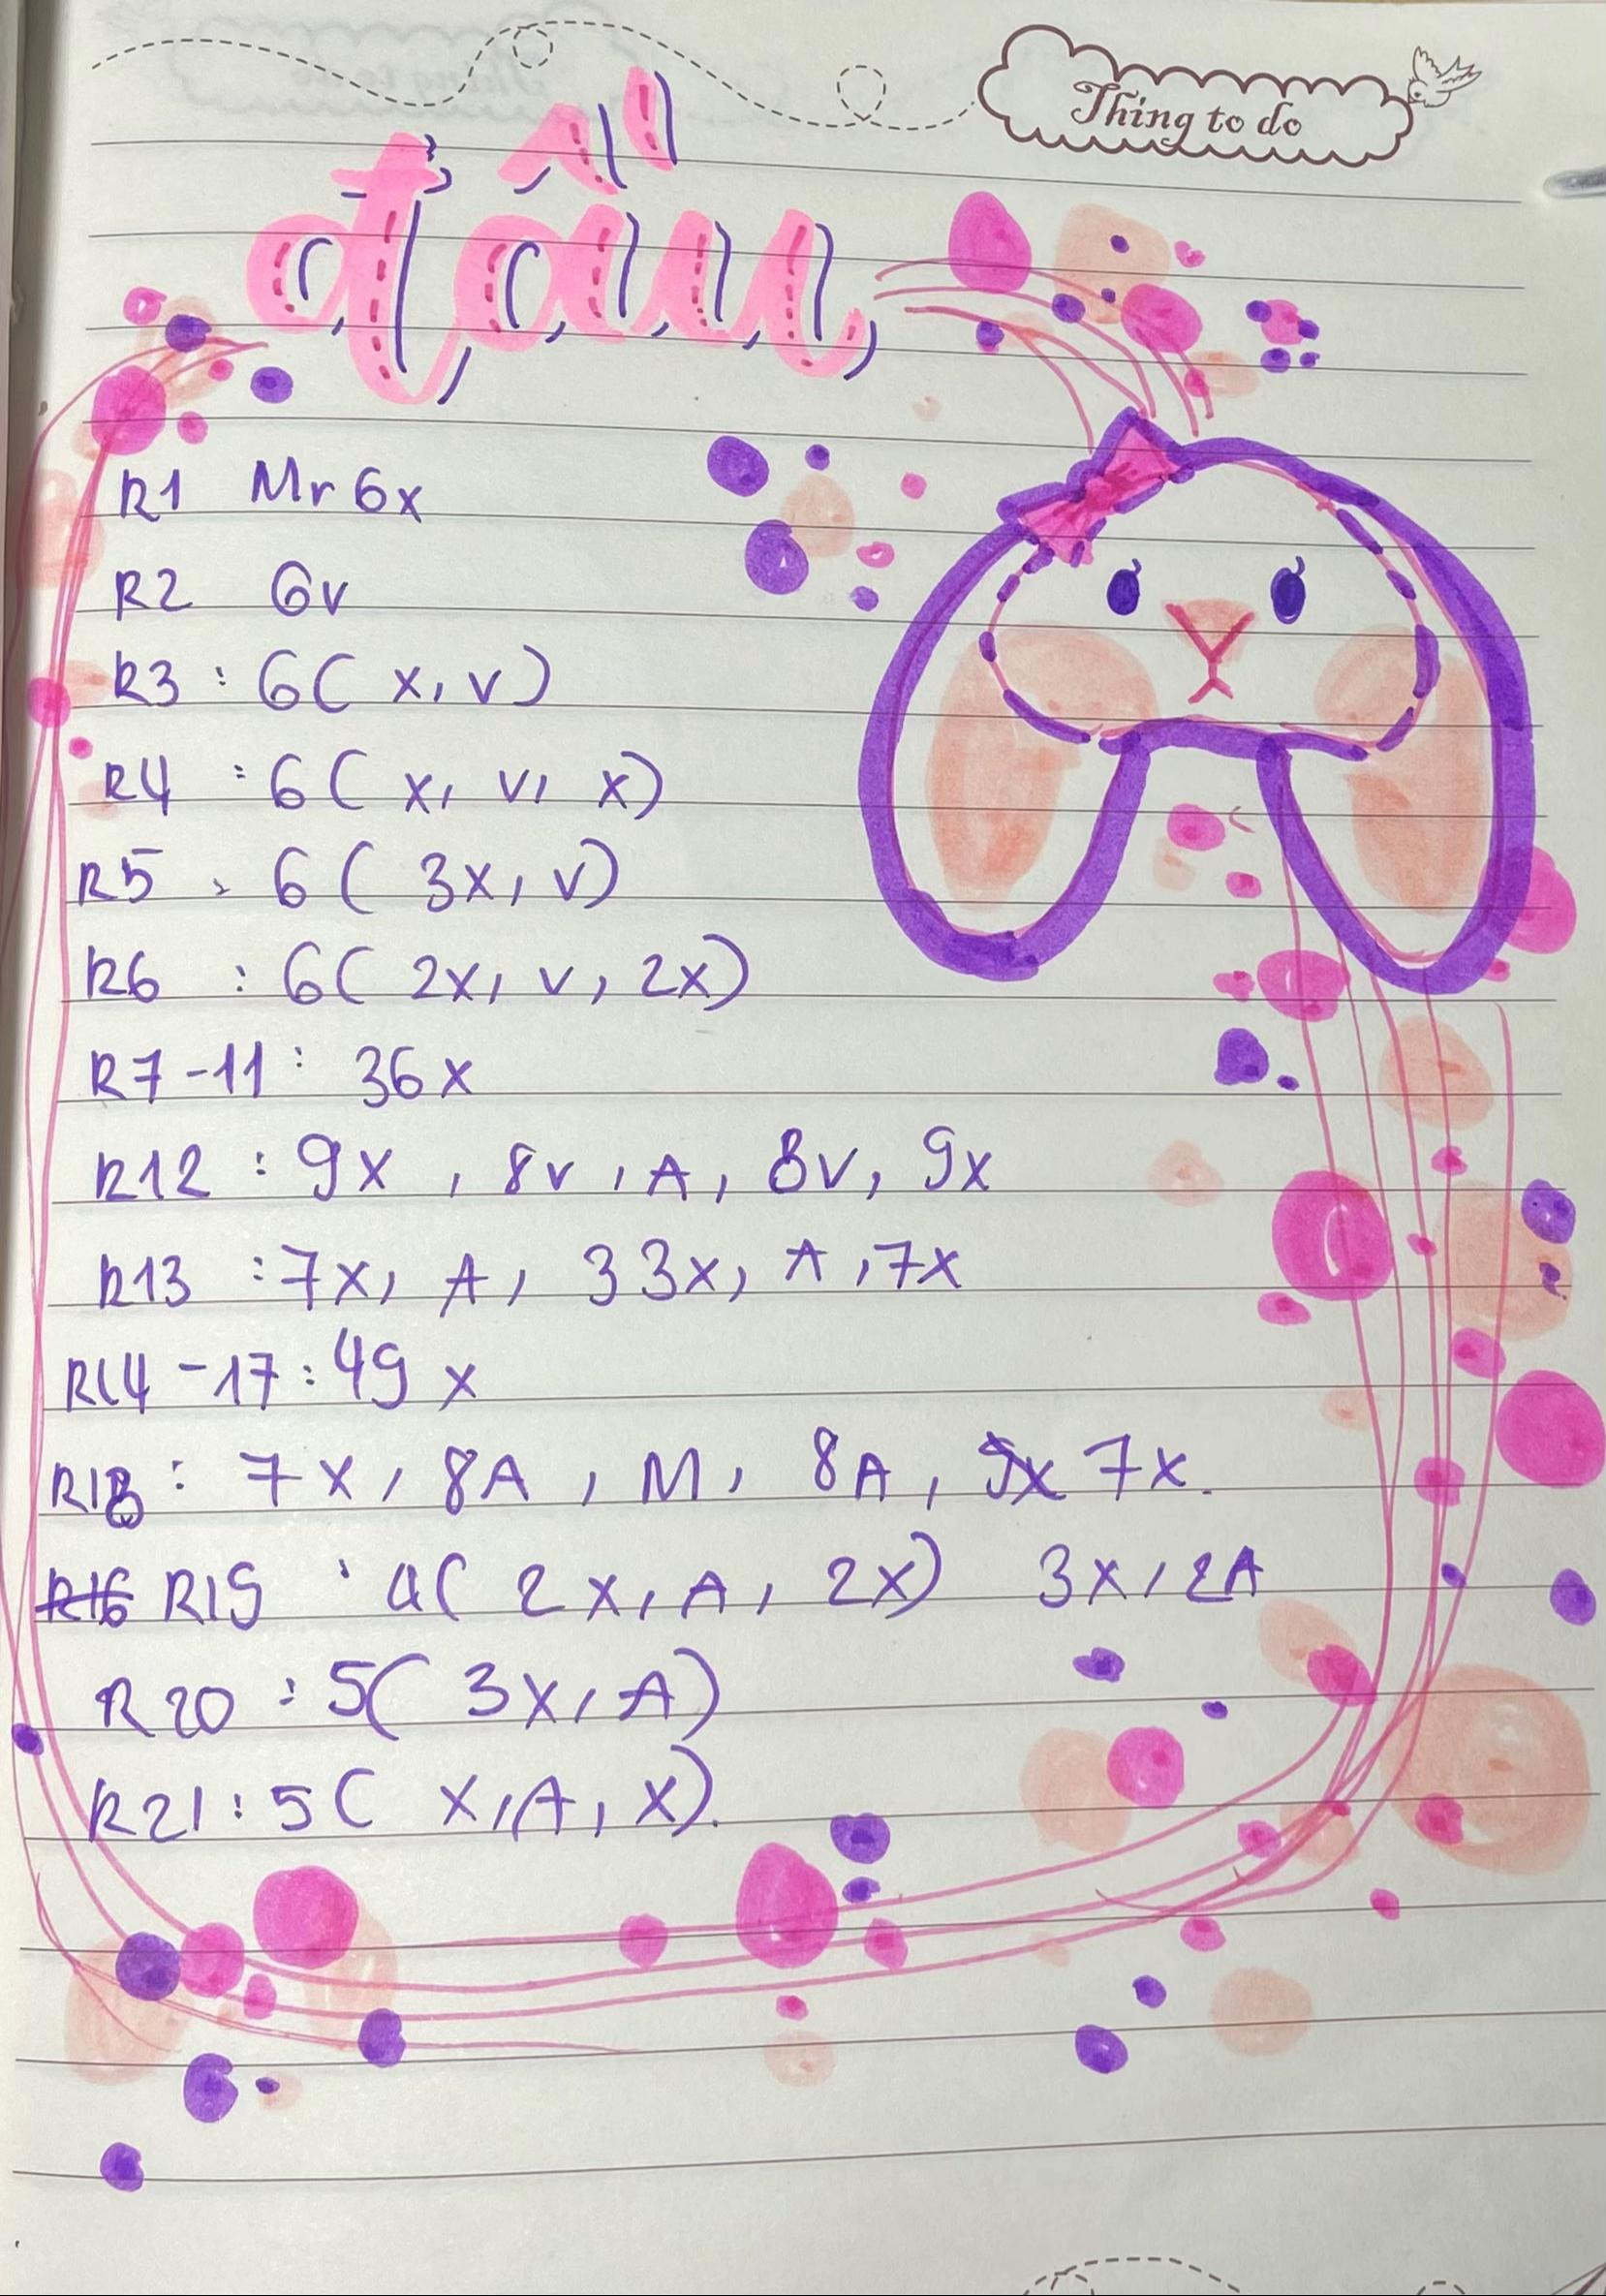 Thing to do
đầu
R1 Mr 6x
R2 6v
R3 : 6( x, v)
R4 : 6( x, v, x)
R5 : 6( 3x, v)
R6 : 6( 2x, v, 2x)
R7-11 : 36x
R12 : 9x, 8v, A, 8v, 9x
R13 : 7x, A, 33x, A, 7x
R14-17 : 49x
R18 : 7x, 8A, M, 8A, 9x 7x.
R16 R19 : 4( 2x, A, 2x) 3x, 2A
R20 : 5( 3x, A)
R21 : 5( x, A, x).